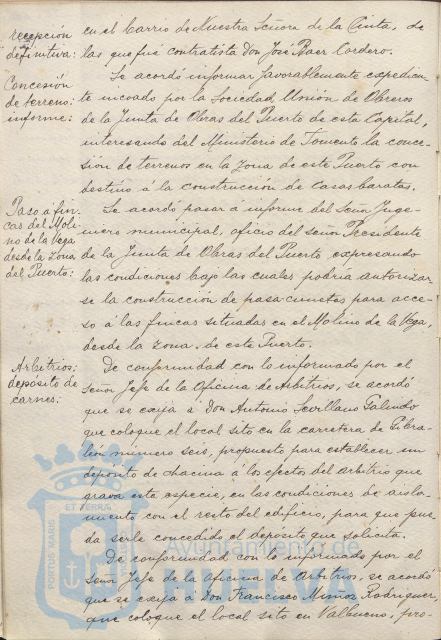 recepción
definitiva:
en el barrio de Nuestra Señora de la Cinta, de
las que fué contratista Don José Baer Cordero.
Concesión
de terreno:
informe:
Se acordó informar favorablemente expedien-
te incoado por la Sociedad Unión de Obreros
de la Junta de Obras del Puerto de esta Capital,
interesando del Ministerio de Fomento la conce-
sión de terrenos en la zona de este Puerto con
destino a la construcción de casas baratas.
Paso á fin-
cas del Moli-
no de la Vega
desde la Zona
del Puerto:
Se acordó pasar á informe del Señor Inge-
niero municipal, oficio del señor Presidente
de la Junta de Obras del Puerto expresando
las condiciones bajo las cuales podría autorizar
se la construcción de pasa cunetas para acce-
so á las fincas situadas en el Molino de la Vega,
desde la zona, de este Puerto.
Arbitrios:
depósito de
carnes:
De conformidad con lo informado por el
Señor Jefe de la Oficina de Arbitrios, se acordó
que se exija á Don Antonio Sevillano Galindo
que coloque el local sito en la carretera de Gibra-
león número seis, propuesto para establecer un
depósito de chacina á los efectos del arbitrio que
grava esta especie, en las condiciones de aisla-
miento con el resto del edificio, para que pue-
da serle concedido el depósito que solicita.
De conformidad con lo informado por el
Señor Jefe de la Oficina de Arbitrios, se acordó
que se exija á Don Francisco Muñoz Rodríguez,
que coloque el local sito en Valbueno, pro-
PORTUS MARIS
ET TERRÆ
Ayuntamiento de
HUELVA